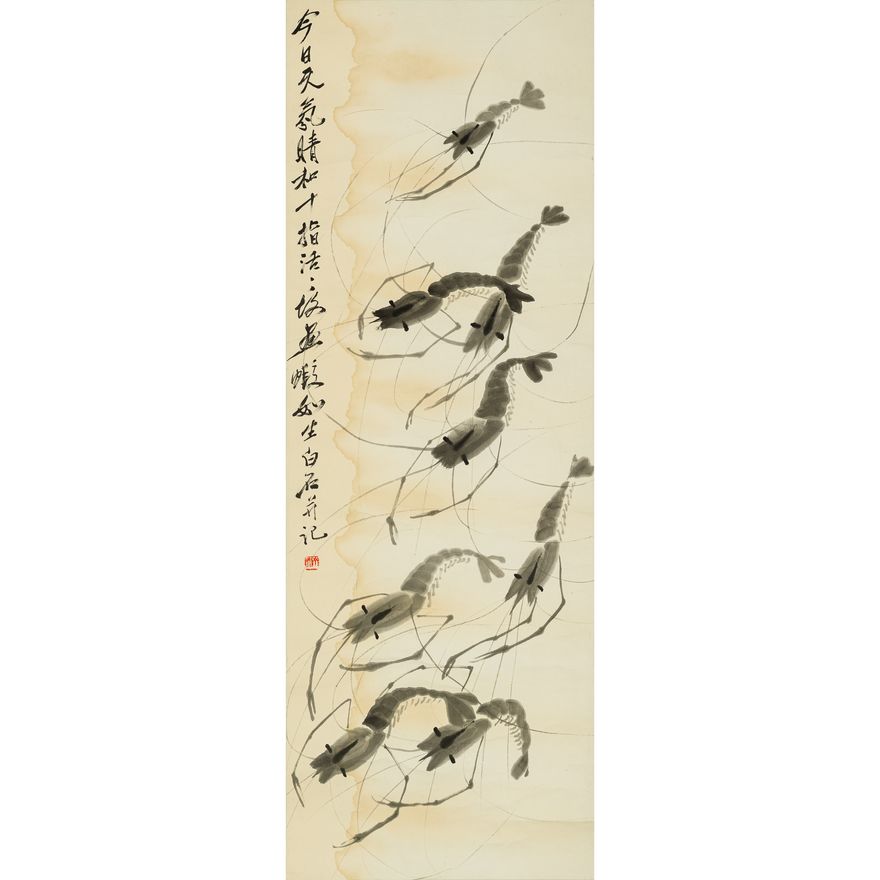 今日天氣晴和十指活々故畫蝦如生白石并記